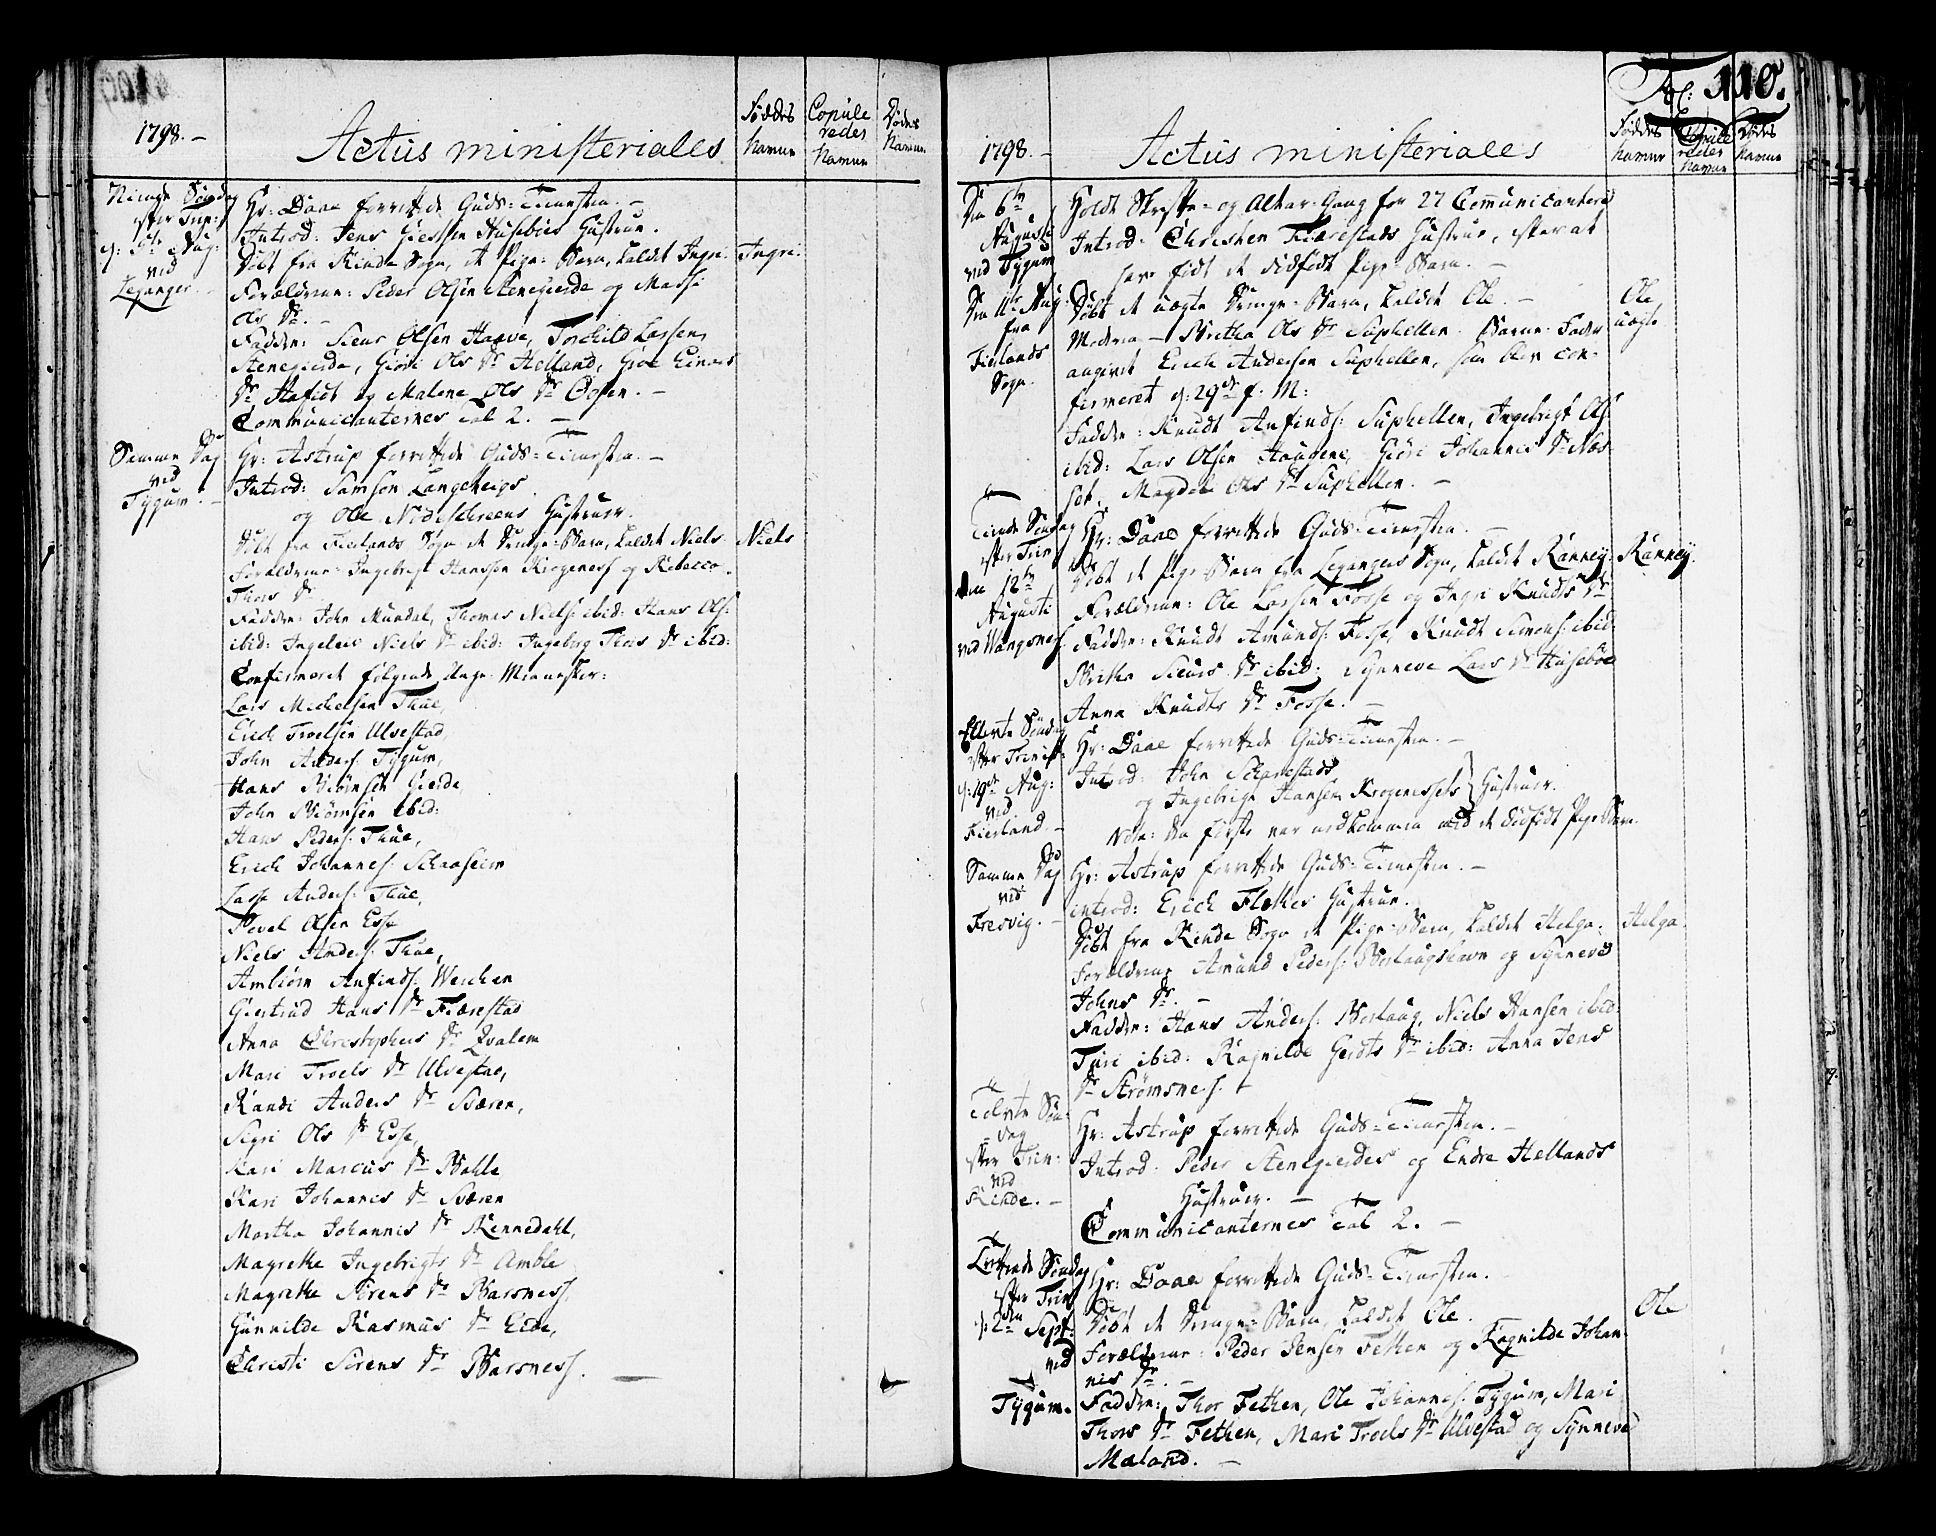 1798. –
Actus ministeriales
Føddes Navne
Copule redes Navne
Dødes Navne
Niende Søndag
efter Trin:
d: 5te Aug:
vid
Leganger. –
Hr: Daae forrettede Guds-Tienesten. –
Introd: Jens Giessen Husebøes Hustrue.
Døbt fra Rinde Sogn, et Pige-Barn, kaldet Ingri.
Ingri.
Forældrene: Peder Olsen Stenegierde og
Ols Dr. –
Faddere: Siur Olsen Haave, Torchild Lassen
Stenegierde, Giøri Ols Dr Helland, Giøe Einers
Dr Hafidt og Malene Ols Dr –
Communicanternes tal 2. –
Samme Dag
vid
Tygum. –
Hr: Astrup forrettede Guds-Tienesten. –
Introd: Samson Langeteigs
og Ole Nedschreens Hustruer.
Døbt fra Fierlands Sogn et Drenge-Barn, kaldet Niels.
Niels
Forældrene: Ingebrigt Hanssen Krogeness og Rebecca
Thors Dr
Faddere: John Mundal, Thomes Niels: ibid: Hans Ols:
ibid: Ingeleiv Niels Dr ibid: Ingeborg Thors Dr ibid:
Confirmeret følgende Unge Mennesker:
Lars Michelsen Thue,
Erich Troelsen Ulvestad,
John Anders: Tygum,
Hans Biørnsen Gierde,
John Biørnsen ibid:
Hans Peders: Thue,
Erich Johannes: Schaasheim
Lasse Anders: Thue,
Povel Olsen Esse
Niels Anders: Thue,
Ambiørn Anfinds: Werchen
Giertrud Hans Dr Fiærestad
Anna Christophers Dr Qvalem
Mari Troels Dr Ulvestad,
Randi Anders Dr Sværen,
Sigri Ols Dr Esse,
Kari Marcus Dr Bahle
Kari Johannis Dr Sværen
Martha Johannis Dr Rennedahl,
Magrethe Ingebrigts Dr Amble
Magrethe Sørens Dr Barsness,
Gunnilde Rasmus Dr Eide,
Christi Sørens Dr Barsness. –
Fol: 110.
1798. –
Actus ministeriales
Føddes Navne
Copule redes Navne
Dødes Navne
Den 6te
Augusti
vid Tygum
Holdt Skrifte- og Altar-Gang for 27 Communicantere
Introd: Christen Fiærestads Hustrue, efter at
have født et dødfødt Pige-Barn. –
Den 11te Aug:
fra
Fierlands
Sogn.
Døbt et uægte Drenge-Barn, kaldet Ole. –
Ole,
uægte
Moderen – Britha Ols Dr Suphellen. Barne-Fader
angivet Erich Andersen Suphellen, som blev con-
firmeret d: 29de f. M:
Faddere: Knudt Anfinds: Suphellen, Ingebrigt Ols:
ibid: Lars Olsen Haugene, Giøri Johannis Dr Næs-
sæt, Magdel Ols Dr Suphellen. –
Tiende Søndag
efter Trin
den 12te
Augusti
vid Wangsness.
Hr: Daae forrettede Guds-Tienesten. –
Døbt et Pige-Barn fra Legangers Sogn, kaldet Ranney.
Ranney.
Forældrene: Ole Lassen Fosse og Ingri Knudts Dr
Faddere: Knudt Amunds: Fosse, Knudt Simons: ibid.
Britha Siurs Dr ibid: Synneve Lars Dr Husebøe
Anna Knudts Dr Fosse. –
Ellevte Søndag
efter Trinit:
d: 19de Aug:
vid
Fierland. –
Hr: Daae forrettede Guds-Tienesten. –
Introd: John Scharestads
og Ingebrigt Hansen Krogenessets } Hustruer.
Note: Den første var nedkommen med et dødfødt Pige Barn.
Samme Dag
vid
Fresvig. –
Hr: Astrup forrettede Guds-Tienesten. –
introd: Erich Flethes Hustrue.
Døbt fra Rinde Sogn et Pige-Barn, kaldet Helga.
Helga.
Forældrene Amund Peders: Borlaugshavn og Synneve
Johns Dr. –
Faddere: Hans Anders: Borlaug, Niels Hansen ibid:
Turi ibid: Ragnilde Geidts Dr ibid: Anna Jens
Dr Strømsnes.
Tolvte Søn-
dag
efter Trin:
vid
Rinde. –
Hr: Astrup forrettede Guds-Tienesten. –
Introd: Peder Stenegierdes og Endre Hellands
Hustruer. –
Communicanternes Tal 2. –
Trettende Søndag
efter Trin
d: 2den Sept:
vid
Tygum.
Hr: Daae forrettede Guds-Tienesten.
Døbt et Drenge-Barn, kaldet Ole.
Ole
Forældrene: Peder Jensen Fethen og Ragnilde Johan-
nis Dr. –
Faddere: Thor Fethen, Ole Johannes: Tygum, Mari
Thors Dr Fethen, Mari Troels Dr Ulvestad og Synneve
Mæland. –